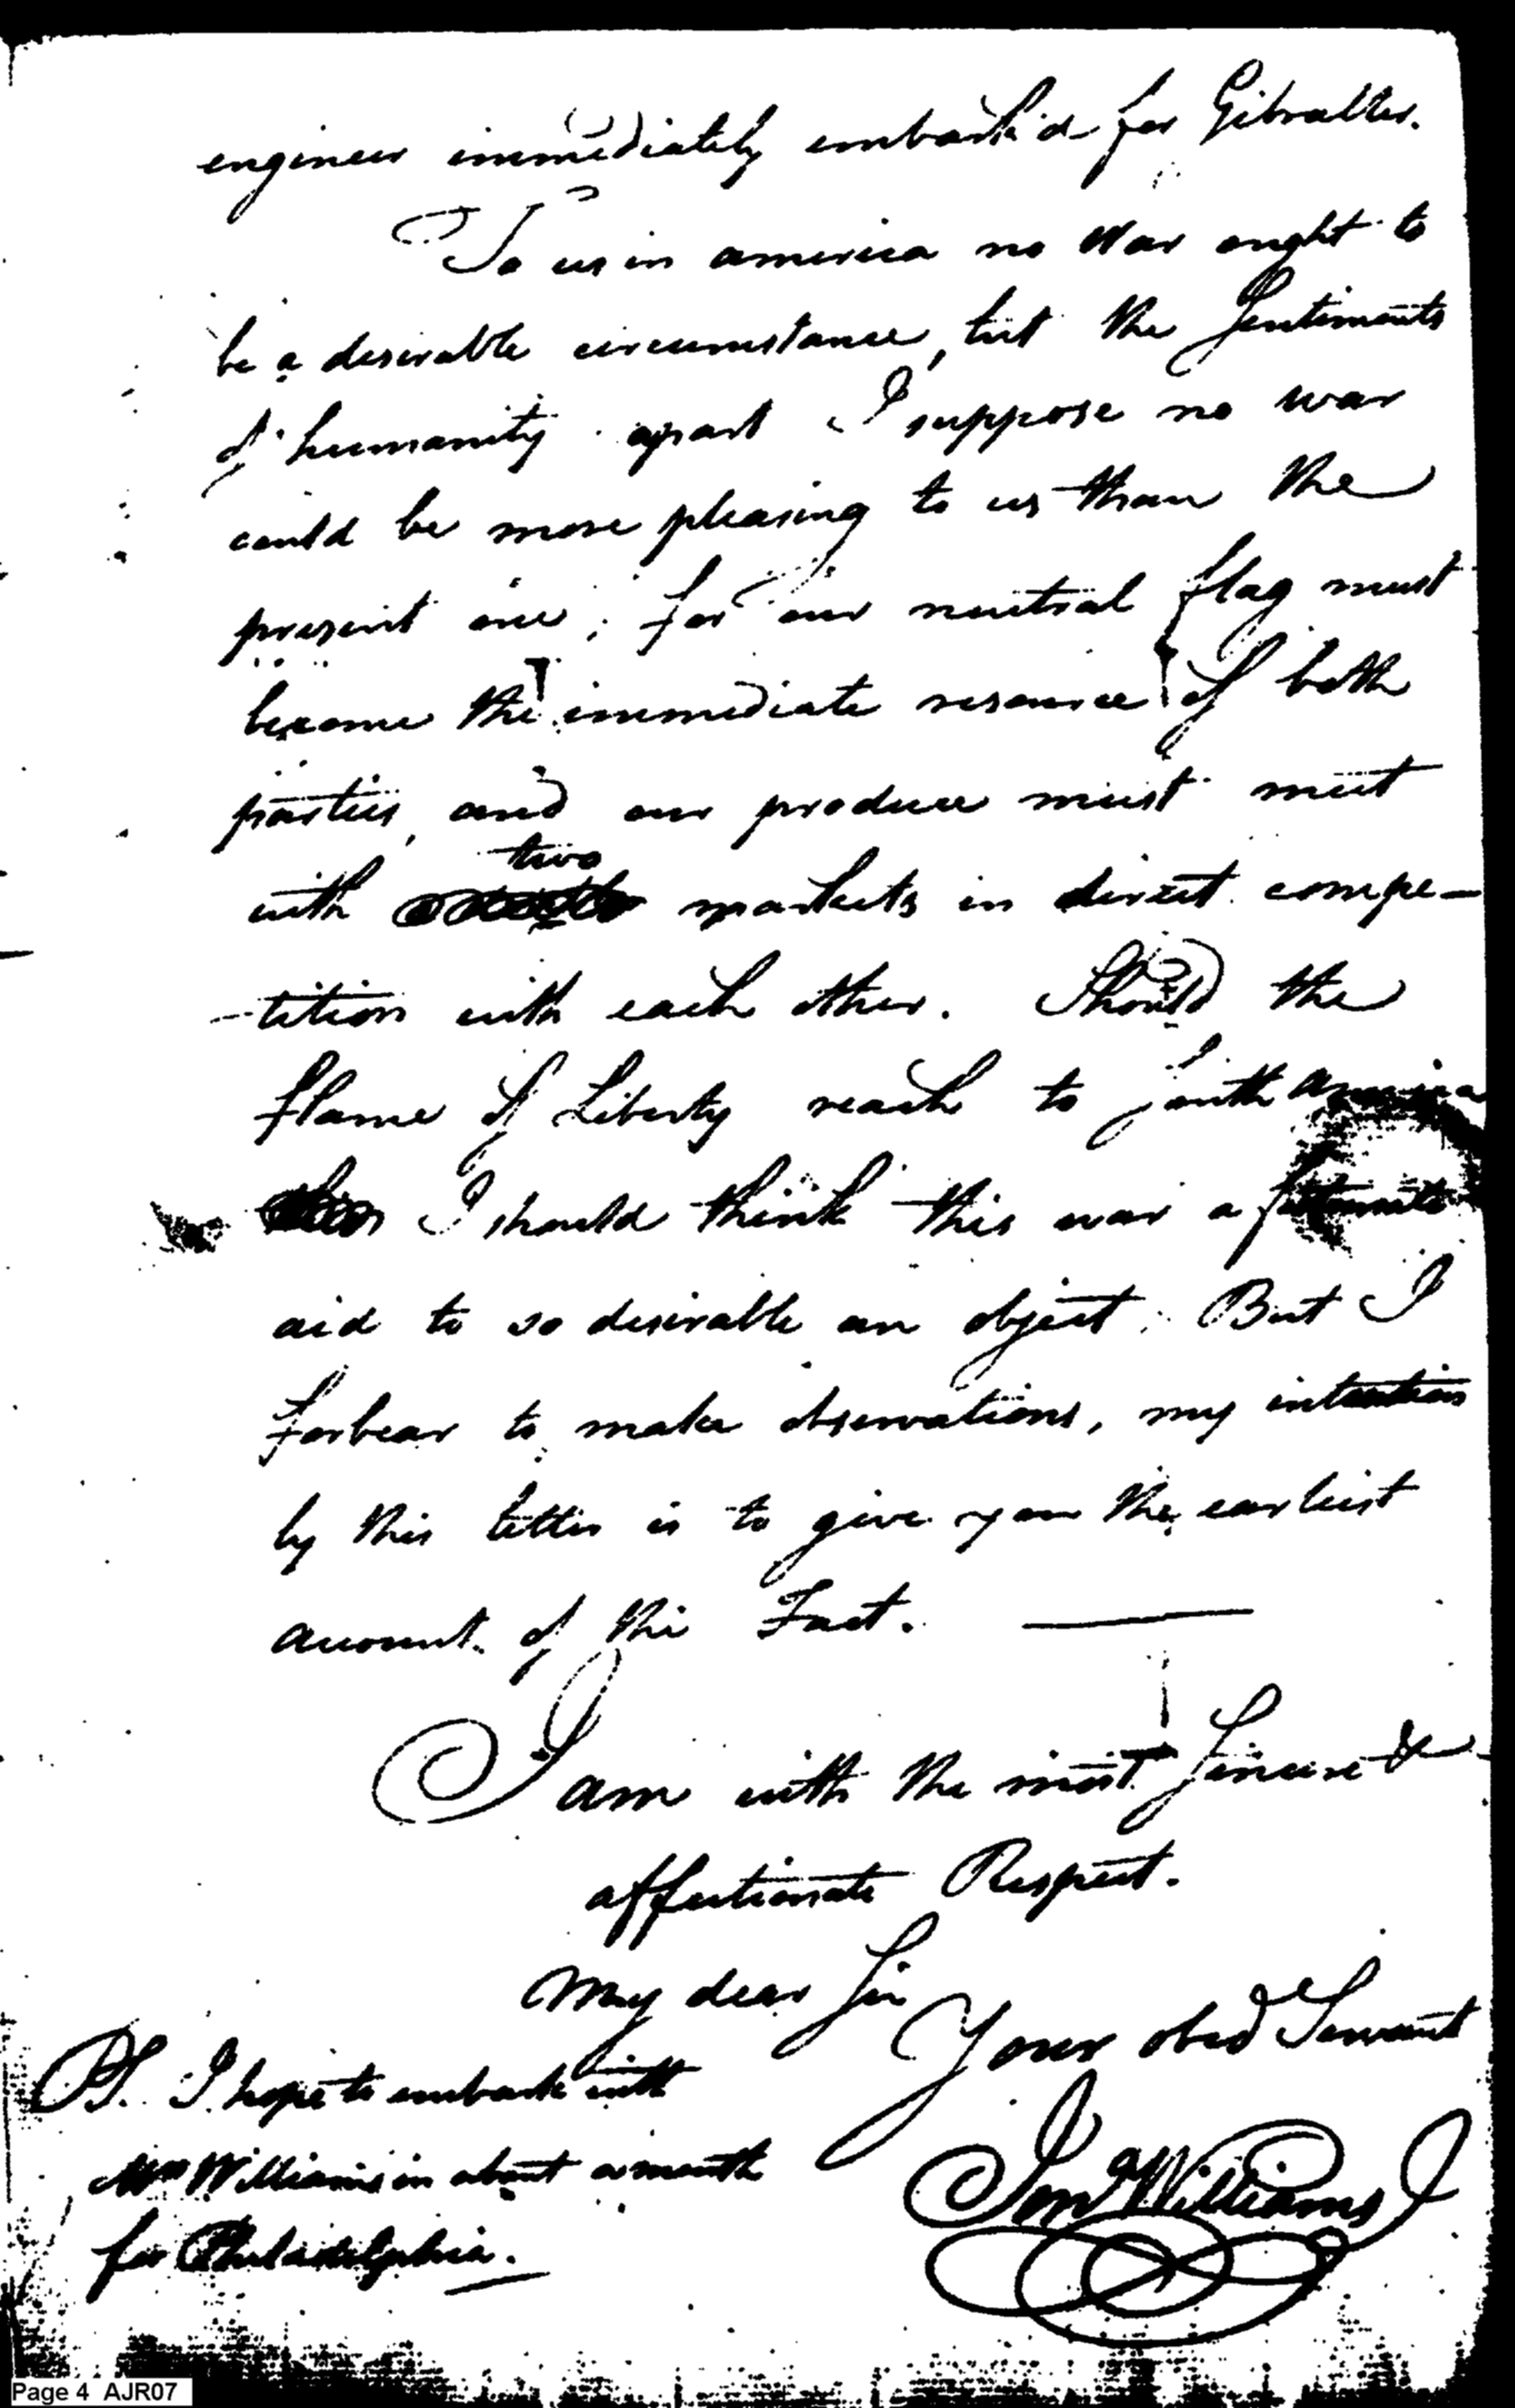 engineer immediately embark'd for Gibralter.
To us in america no War ought to
be a desirable circumstance, but the Sentiments
of humanity apart I suppose no war
could be more pleasing to us than the
present one; for our neutral flag must
become the immediate resource of both
parties, and our produce must meet
two
with markets in direct compe-
-tition with each other. Should the
flame of Liberty reach to South America
I should think this war a fortunate
aid to so desirable an object. But I
forbear to make observations, my intention
by this letter is to give you the earliest
account of the Fact.
I am with the most Sincere &
affectionate Respect.
My dear Sir
Your obed Servant
Jon Williams J
PS. I hope to embark with
Mr Williams in about a month
for Philadelphia.
Page 4 AJR07